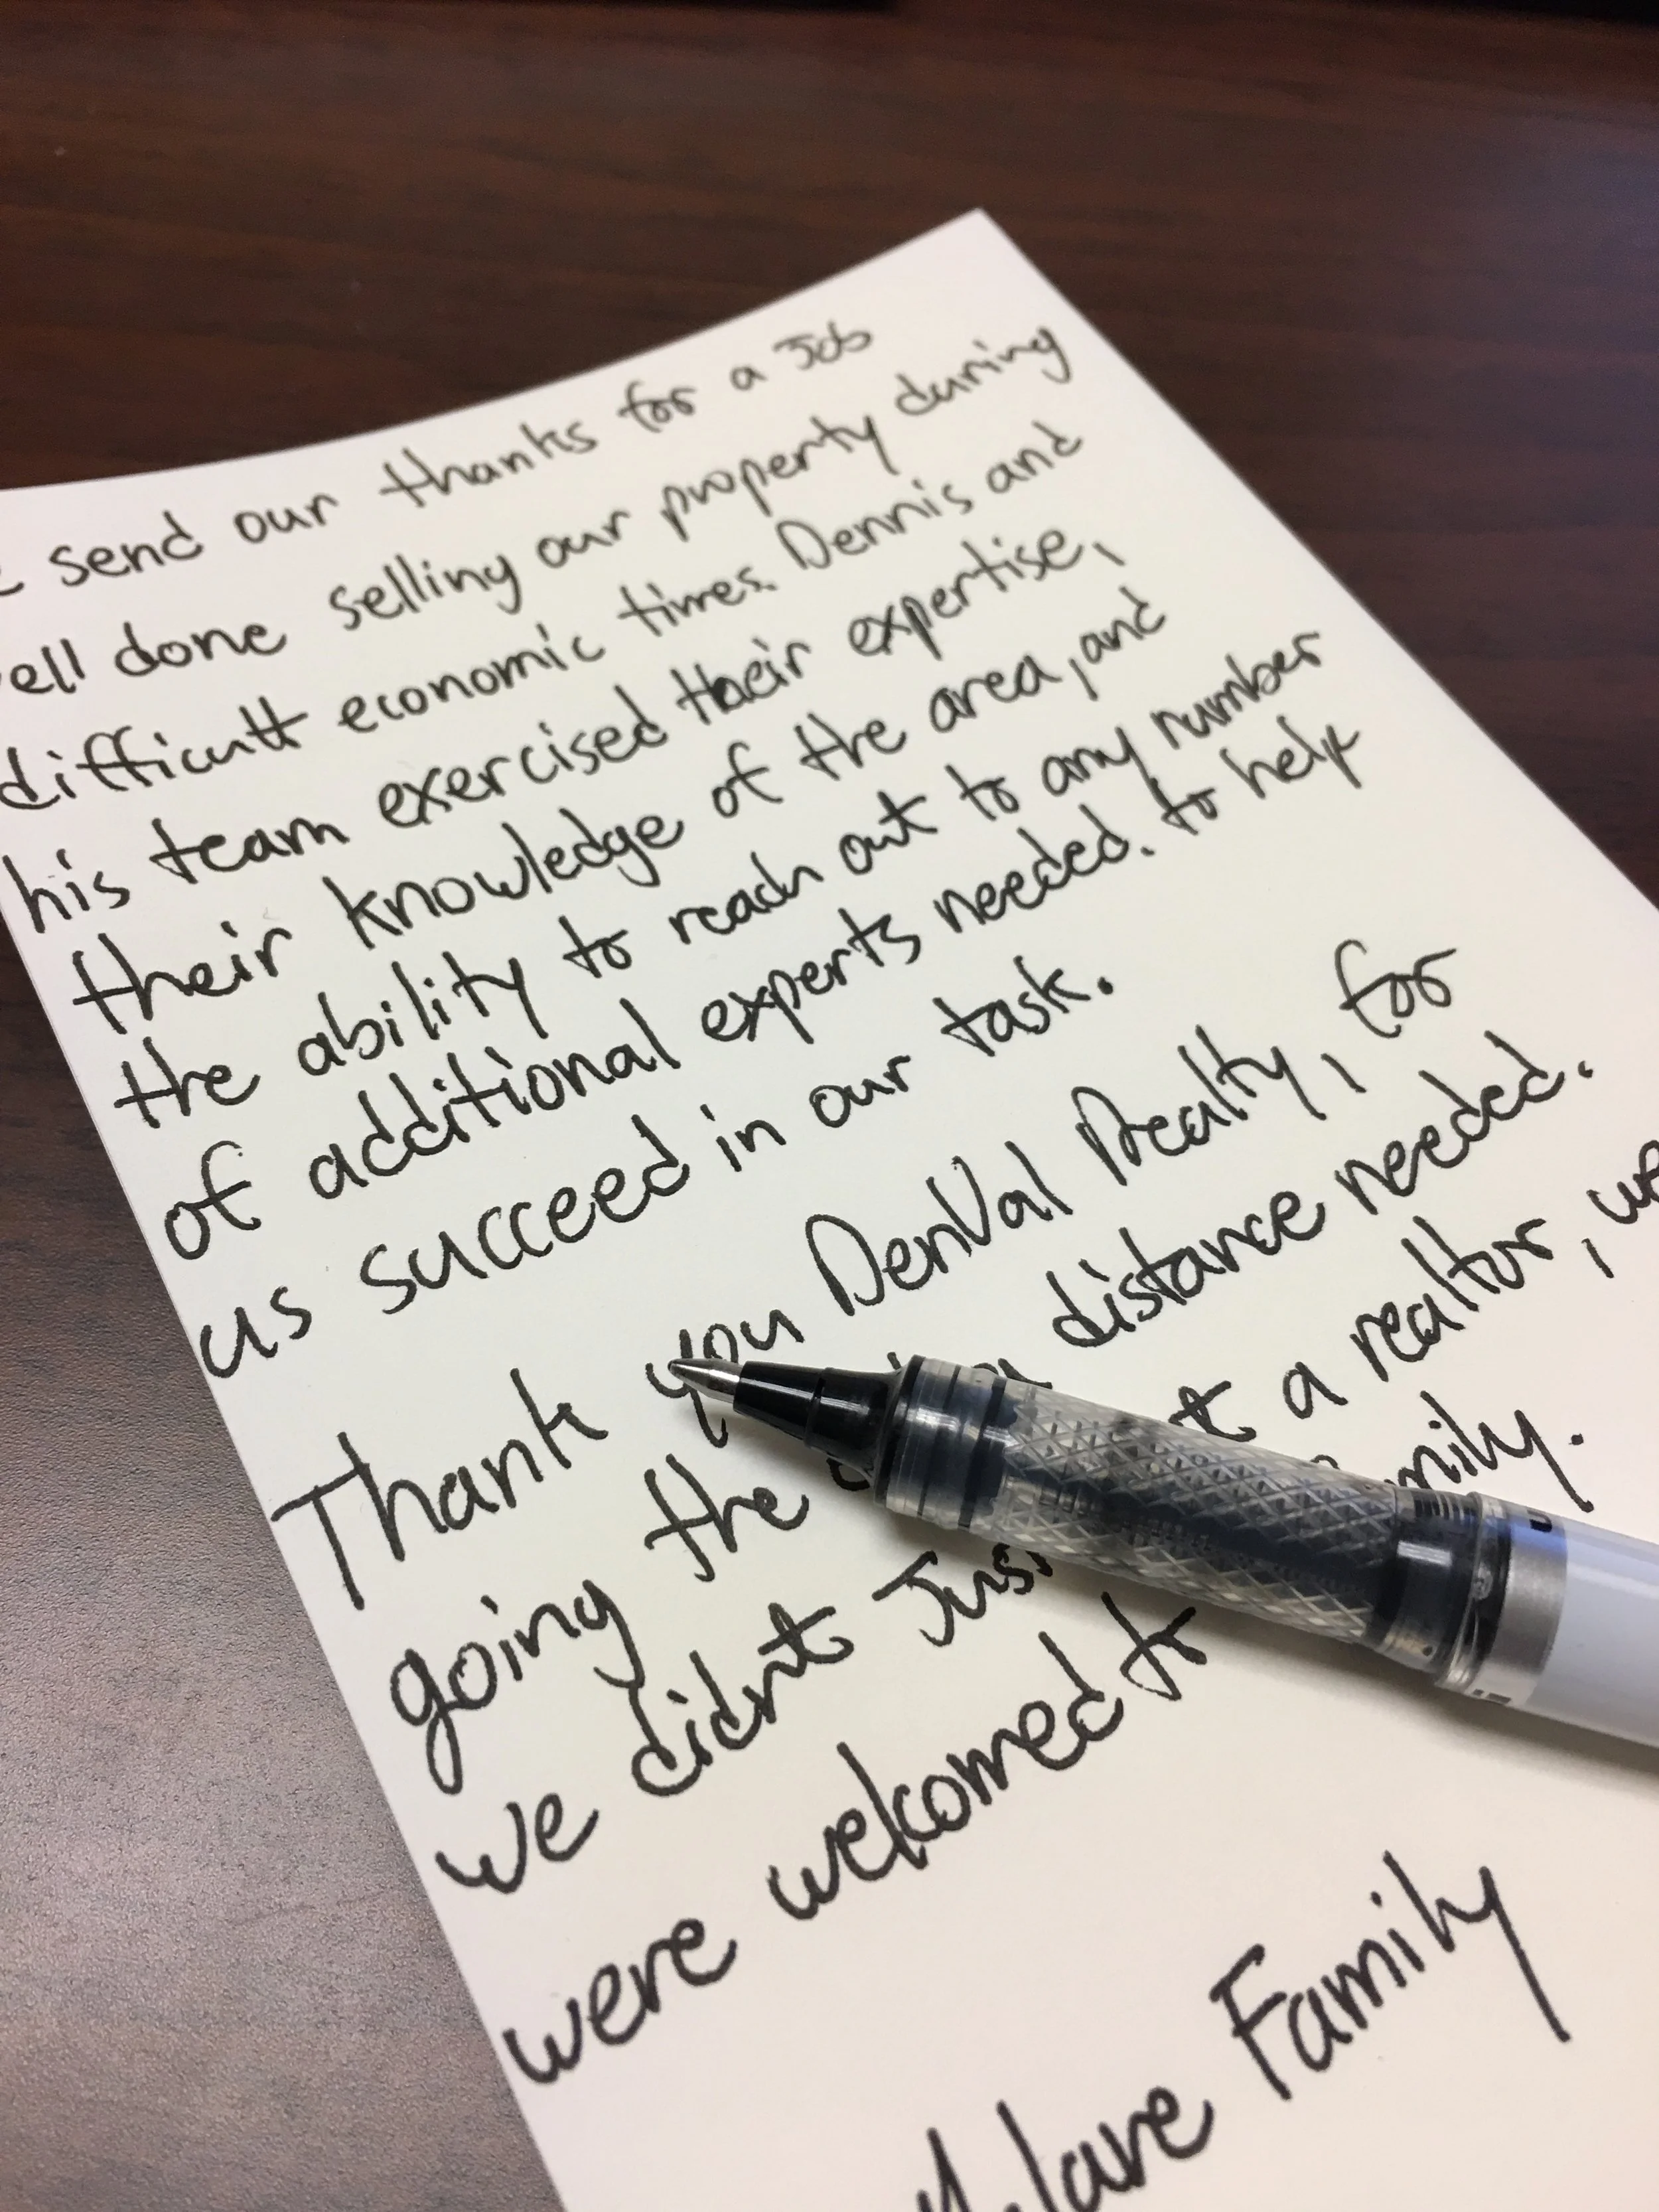 send our thanks for a Job
ell done selling our property during
difficult economic times. Dennis and
his team exercised their expertise,
their knowledge of the area, and
the ability to reach out to any number
of additional experts needed. to help
us succeed in our task.
Thank you DenVal Realty, for
going the distance needed.
we didnt Just a realtor, we
were welcomed to mily.
Family